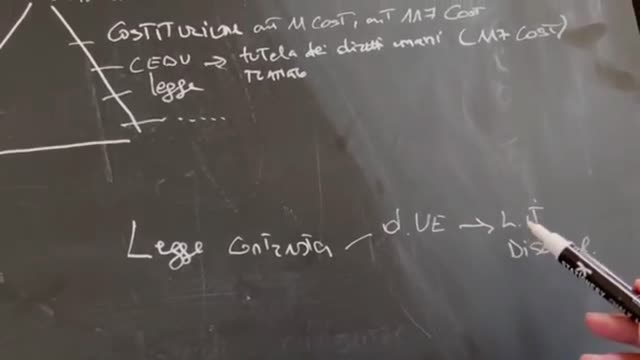 COSTITUZIONE art 11 COST, art 117 COST
CEDU → tutela dei diritti umani (117 COST)
legge
......
Legge contrasta — d.UE → L.IT